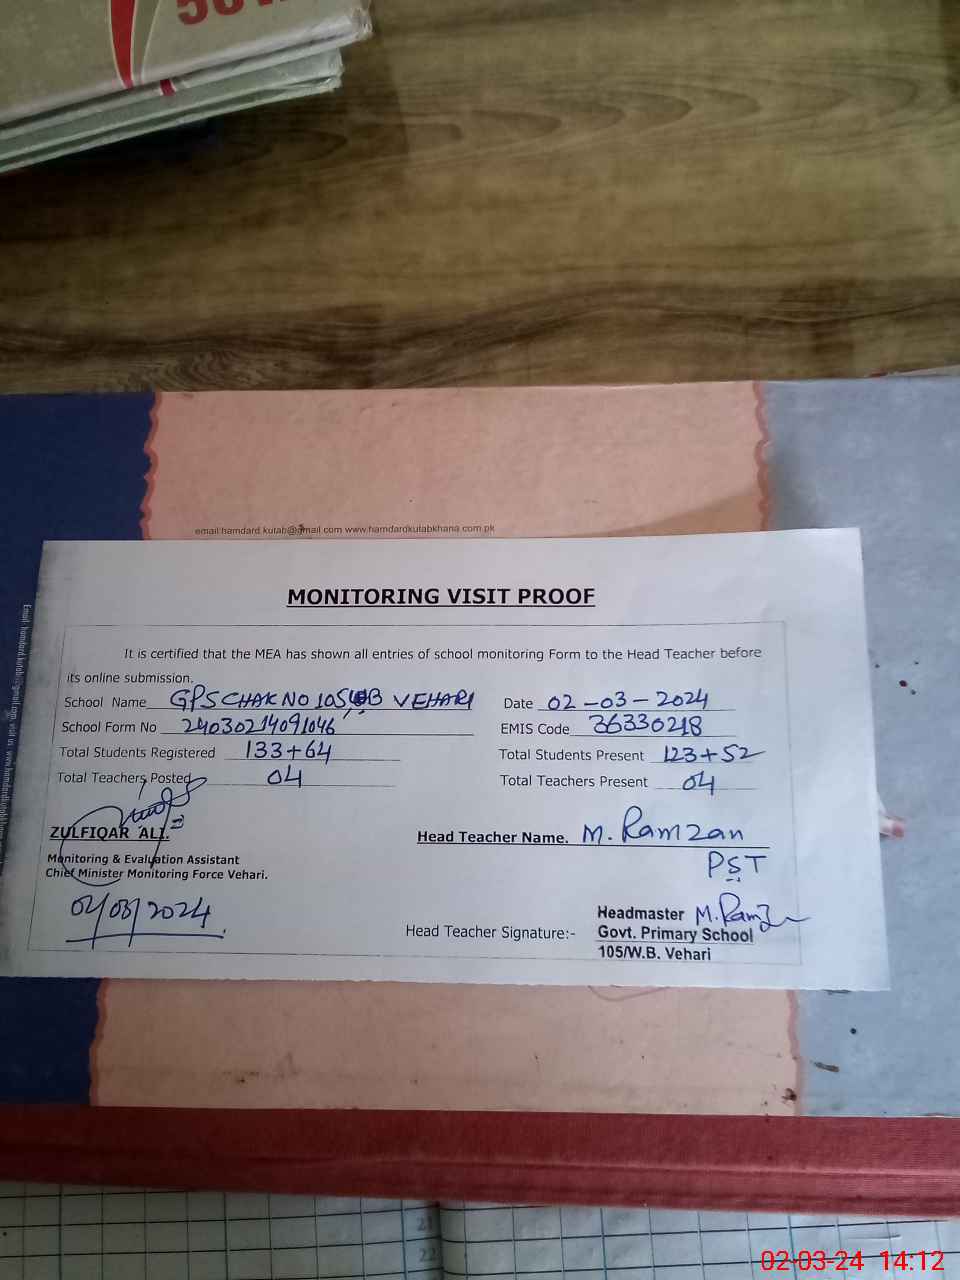 email:hamdard.kutab@gmail.com www.hamdardkutabkhana.com.pk
MONITORING VISIT PROOF
It is certified that the MEA has shown all entries of school monitoring Form to the Head Teacher before
its online submission.
School Name GPS CHAK NO 105 WB VEHARI Date 02-03-2024
School Form No 24030214091046 EMIS Code 36330218
Total Students Registered 133+64 Total Students Present 123+52
Total Teachers Posted 04 Total Teachers Present 04
ZULFIQAR ALI. Head Teacher Name. M. Ramzan
PST
Monitoring & Evaluation Assistant
Chief Minister Monitoring Force Vehari.
02/03/2024
Headmaster M. Ramzan
Head Teacher Signature:- Govt. Primary School
105/W.B. Vehari
21
22
02-03-24 14:12